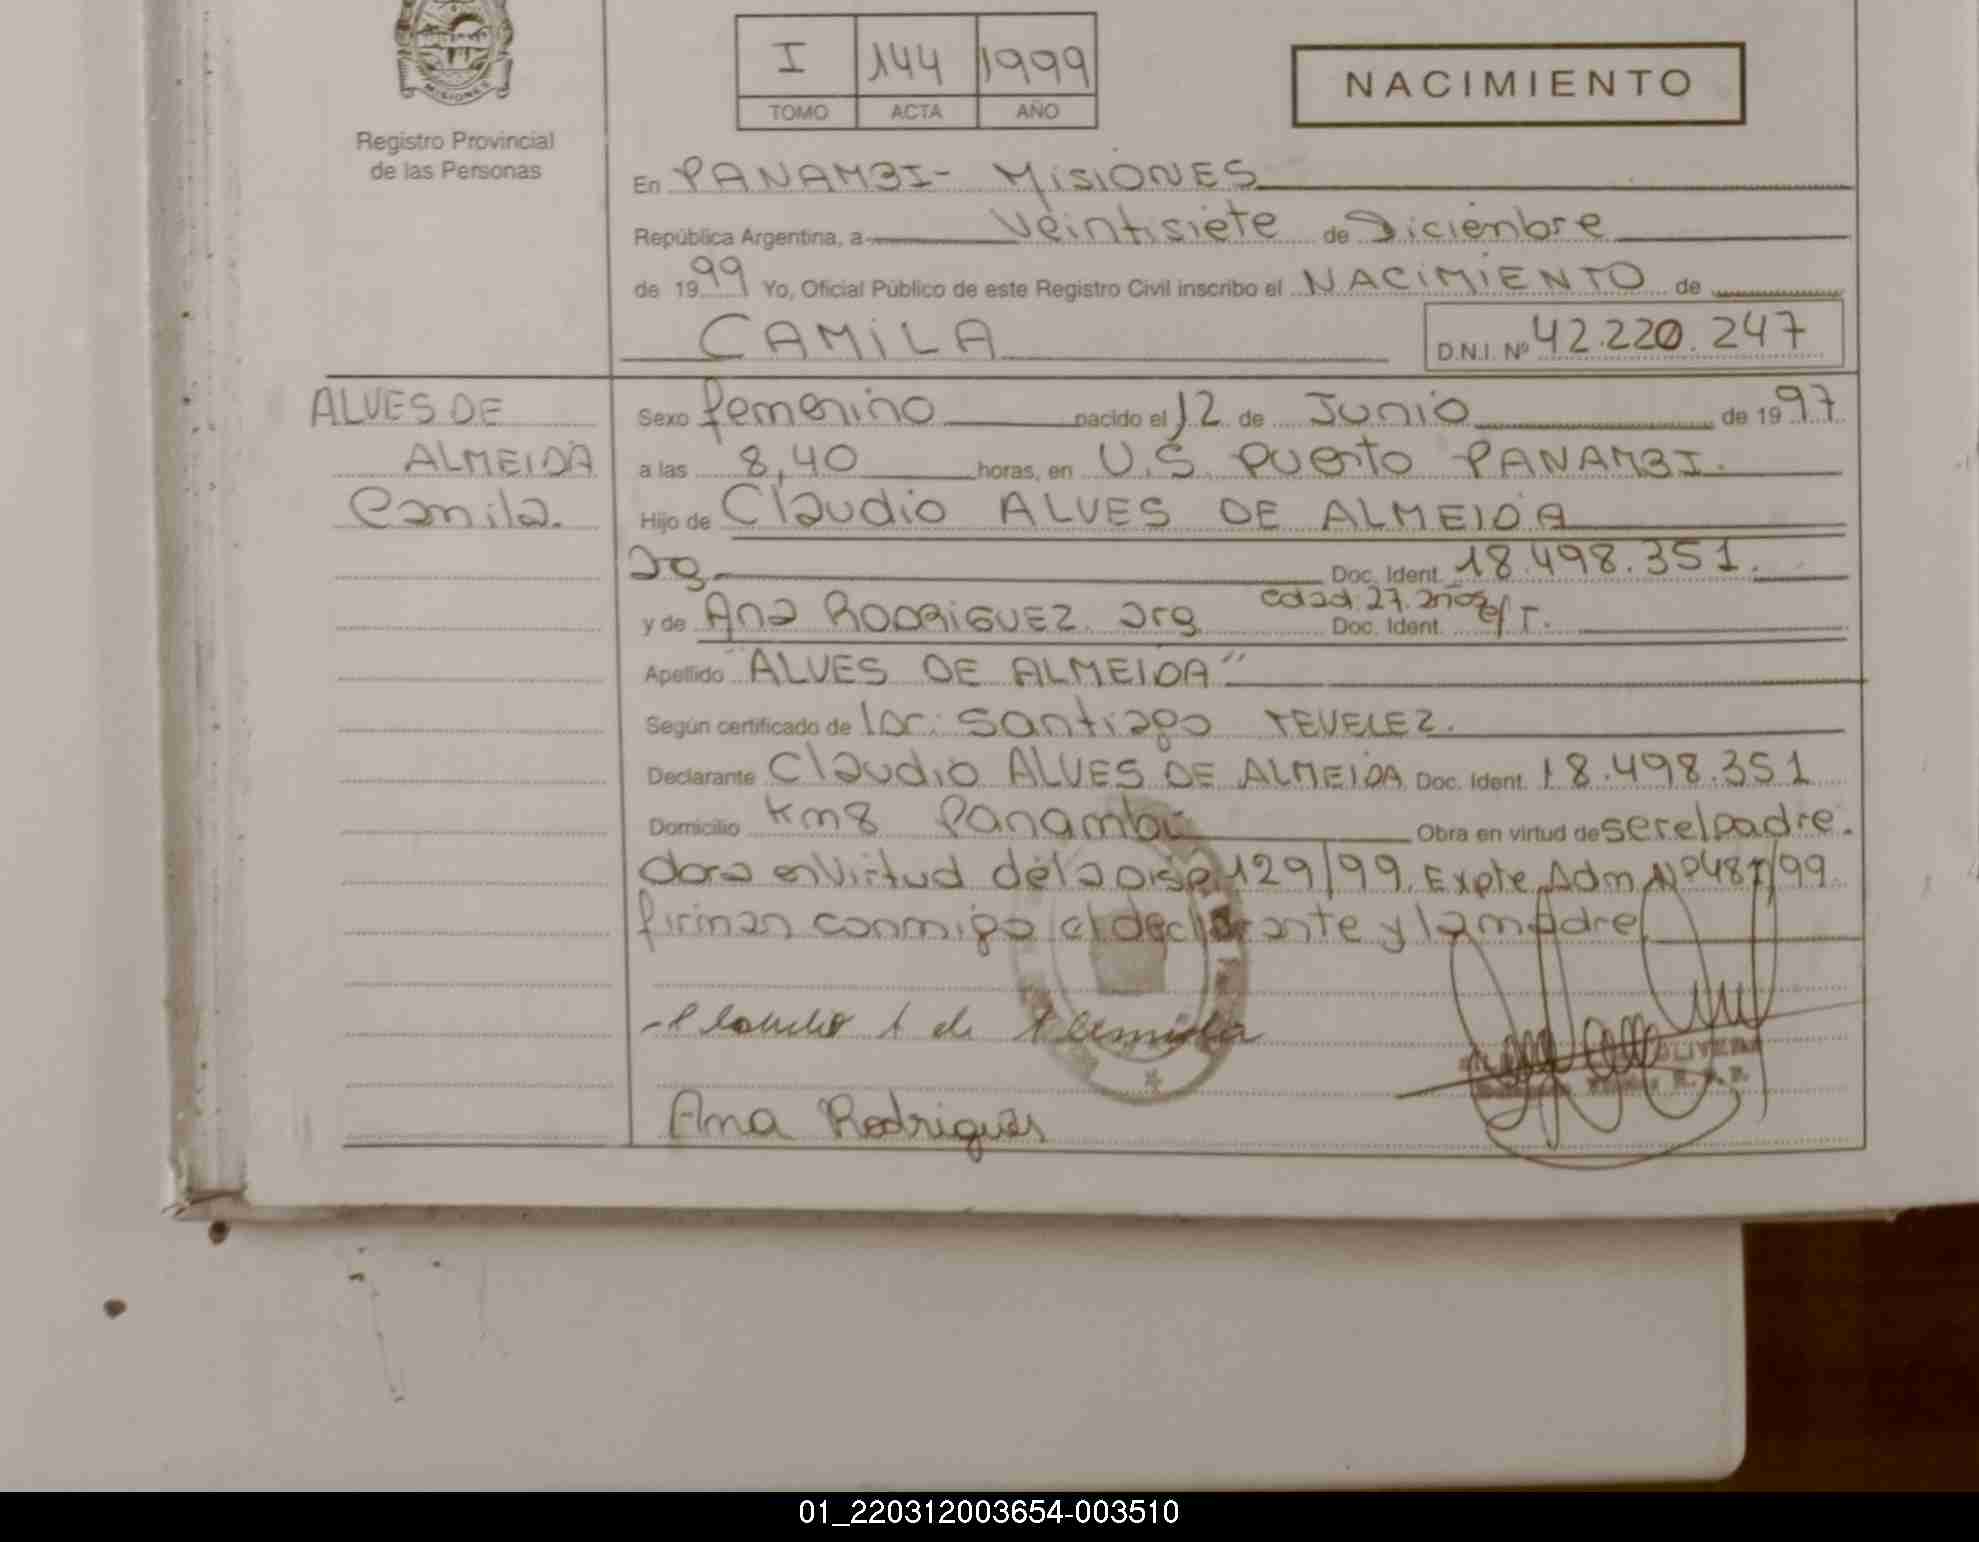 MISIONES
Registro Provincial
de las Personas
I 144 1999
TOMO ACTA AÑO
NACIMIENTO
En PANAMBI - MISIONES
República Argentina, a veintisiete de Diciembre
de 1999 Yo, Oficial Público de este Registro Civil inscribo el NACIMIENTO de
CAMILA D.N.I. Nº 42.220.247
ALVES DE
ALMEIDA
Camila.
Sexo femenino nacido el 12 de Junio de 1997
a las 8,40 horas, en U.S. Puerto PANAMBI.
Hijo de Claudio ALVES DE ALMEIDA
arg Doc. Ident. 18.498.351.
y de Ana RODRIGUEZ arg edad: 27 años Doc. Ident. s/T.
Apellido "ALVES DE ALMEIDA"
Según certificado de loc: Santiago TEVELEZ.
Declarante Claudio ALVES DE ALMEIDA Doc. Ident. 18.498.351
Domicilio Km8 Panambi Obra en virtud de ser el padre.
obra en virtud de la Disp. 129/99. Expte Adm Nº 487/99
firman conmigo el declarante y la madre
Claudio A de Almeida
OLIVERA
Ana Rodrigues
01_220312003654-003510